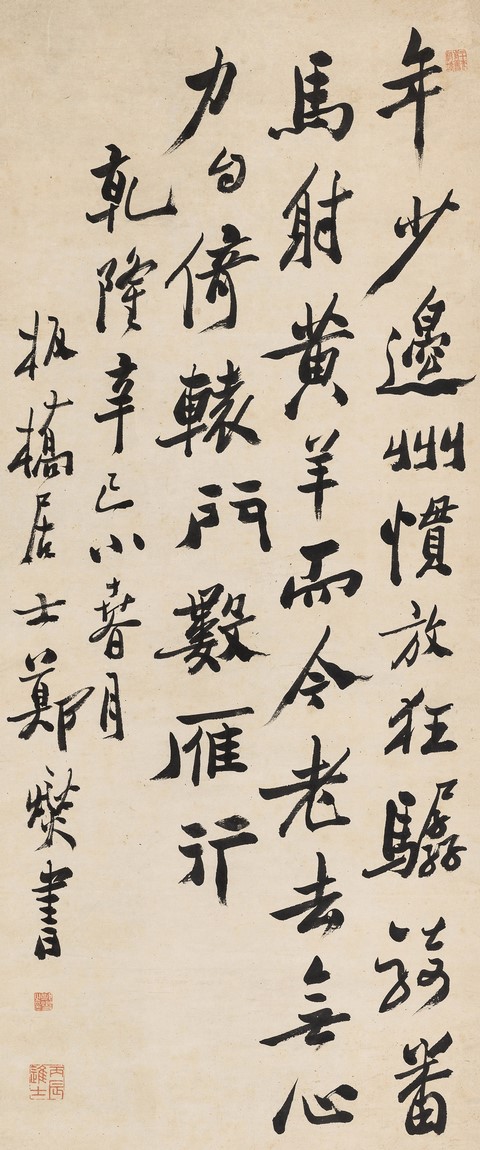 年少邊州慣放狂驏騎番
馬射黃羊而今老去無心
力自倚轅門數雁行
乾隆辛巳小春月
板橋居士鄭燮書
丙辰進士